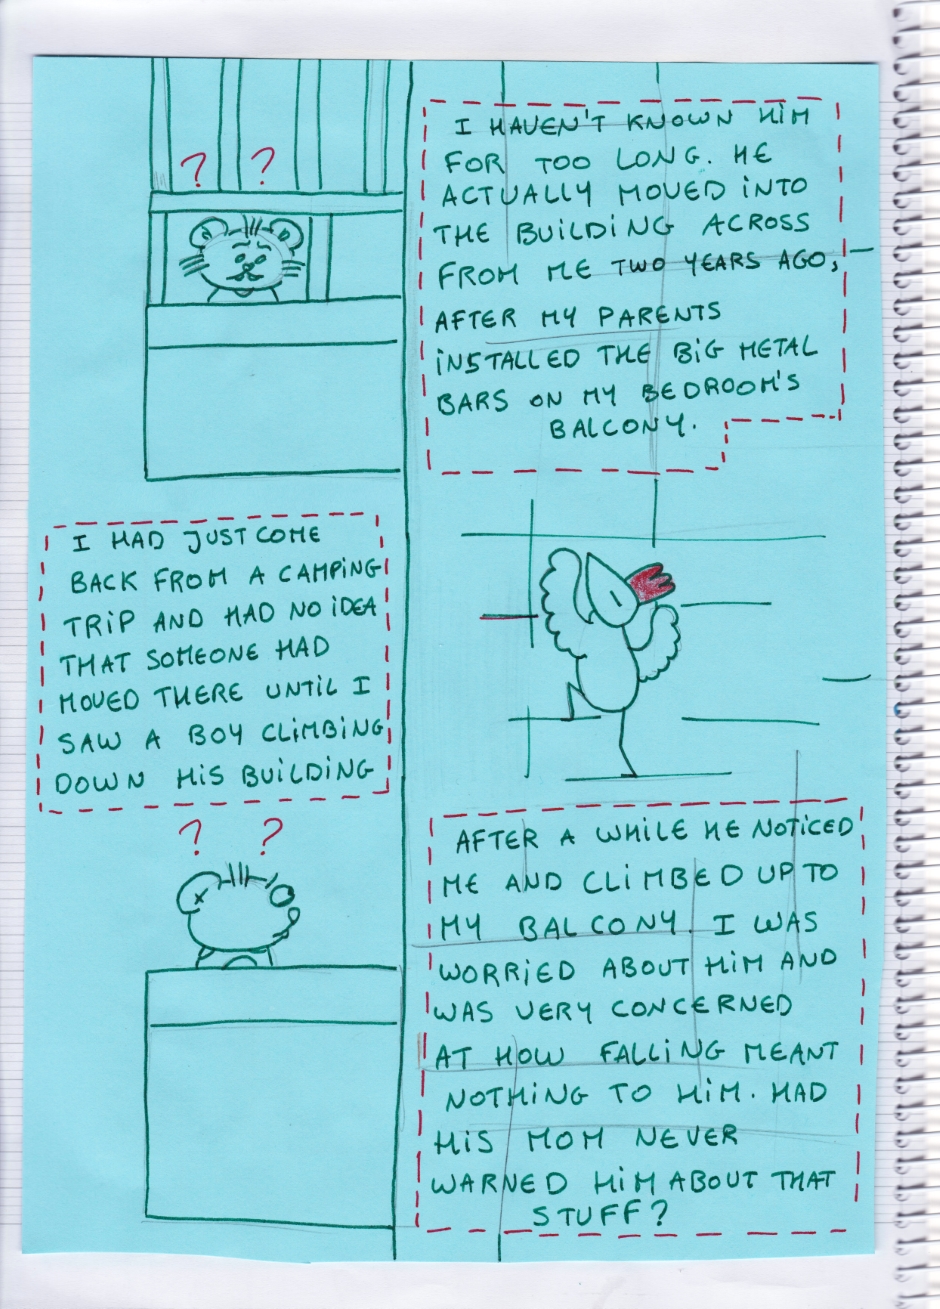 ? ?
I HAVEN'T KNOWN HIM
FOR TOO LONG. HE
ACTUALLY MOVED INTO
THE BUILDING ACROSS
FROM ME TWO YEARS AGO,
AFTER MY PARENTS
INSTALLED THE BIG METAL
BARS ON MY BEDROOM'S
BALCONY.
I HAD JUST COME
BACK FROM A CAMPING
TRIP AND HAD NO IDEA
THAT SOMEONE HAD
MOVED THERE UNTIL I
SAW A BOY CLIMBING
DOWN HIS BUILDING
? ?
AFTER A WHILE HE NOTICED
ME AND CLIMBED UP TO
MY BALCONY. I WAS
WORRIED ABOUT HIM AND
WAS VERY CONCERNED
AT HOW FALLING MEANT
NOTHING TO HIM. HAD
HIS MOM NEVER
WARNED HIM ABOUT THAT
STUFF?